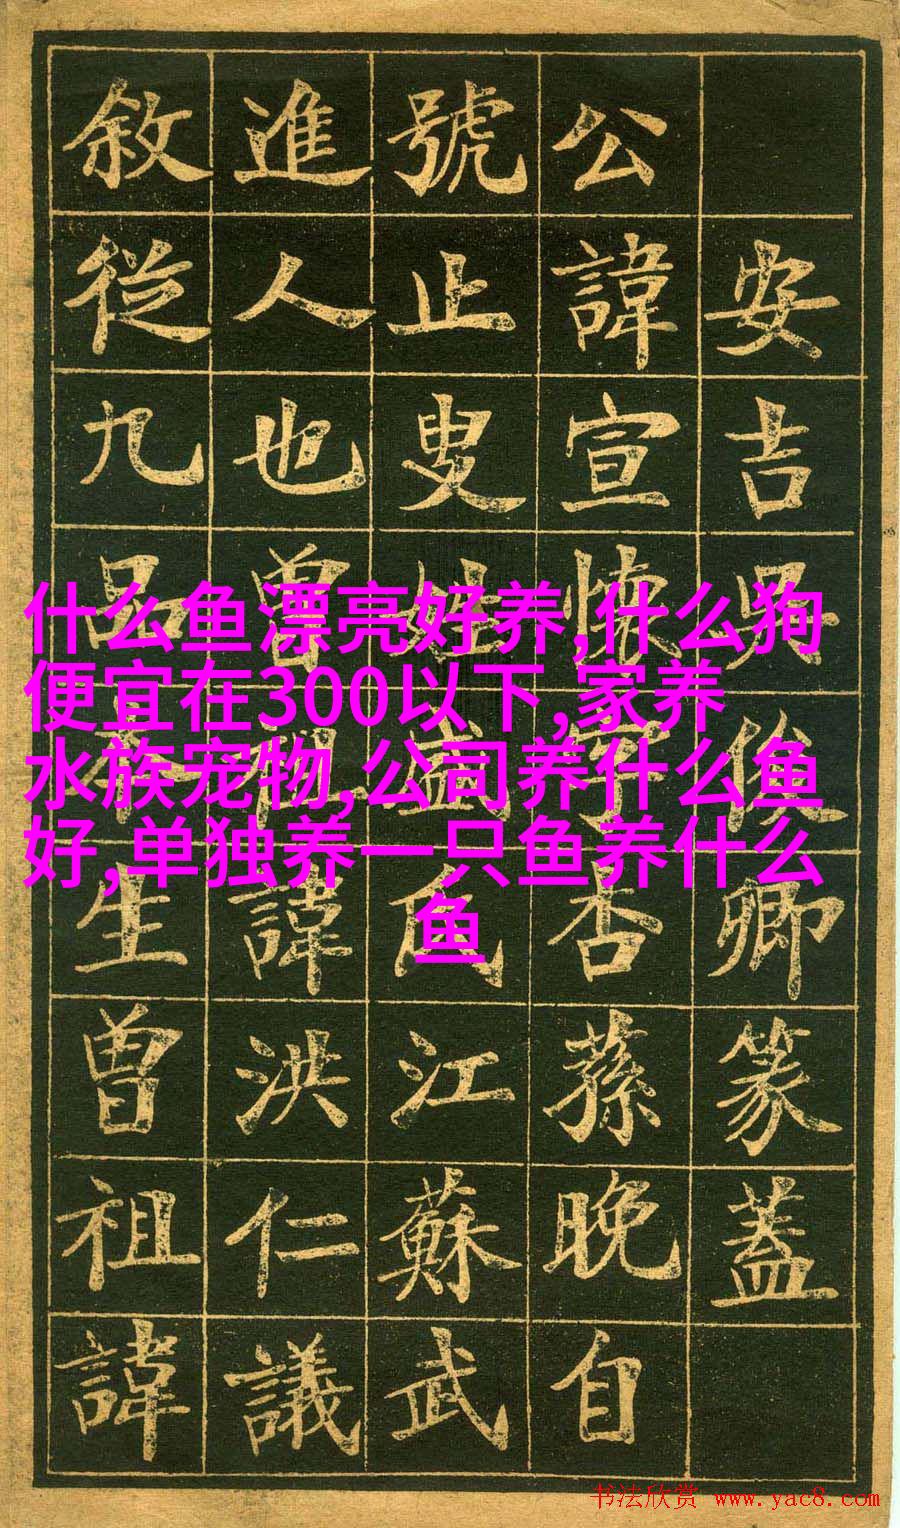 安吉吳俊卿篆蓋
公諱宣懷字杏蓀晚自
號止叟姓盛氏江蘇武
進人也曾諱洪仁議
敘從九品生曾祖諱
什么鱼漂亮好养,什么狗
便宜在300以下,家养
水族宠物,公司养什么鱼
好,单独养一只鱼养什么
鱼
书法欣赏 www.yac8.com